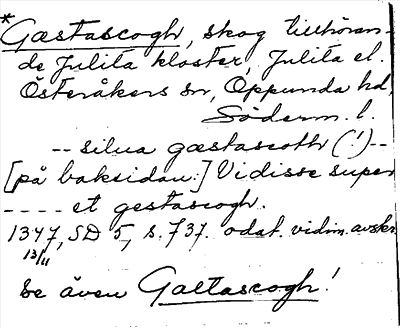 *
Gæstascogh, skog tillhöran-
de Julita kloster, Julita el.
Österåkers sn, Oppunda hd,
Söderm. l.
-- silua gæstascoth (!)--
[på baksidan:] Vidisse super
---- et gestascogh.
1347, SD 5, s. 737. odat. vidim. avskr.
13/11
Se även Gaetascogh!